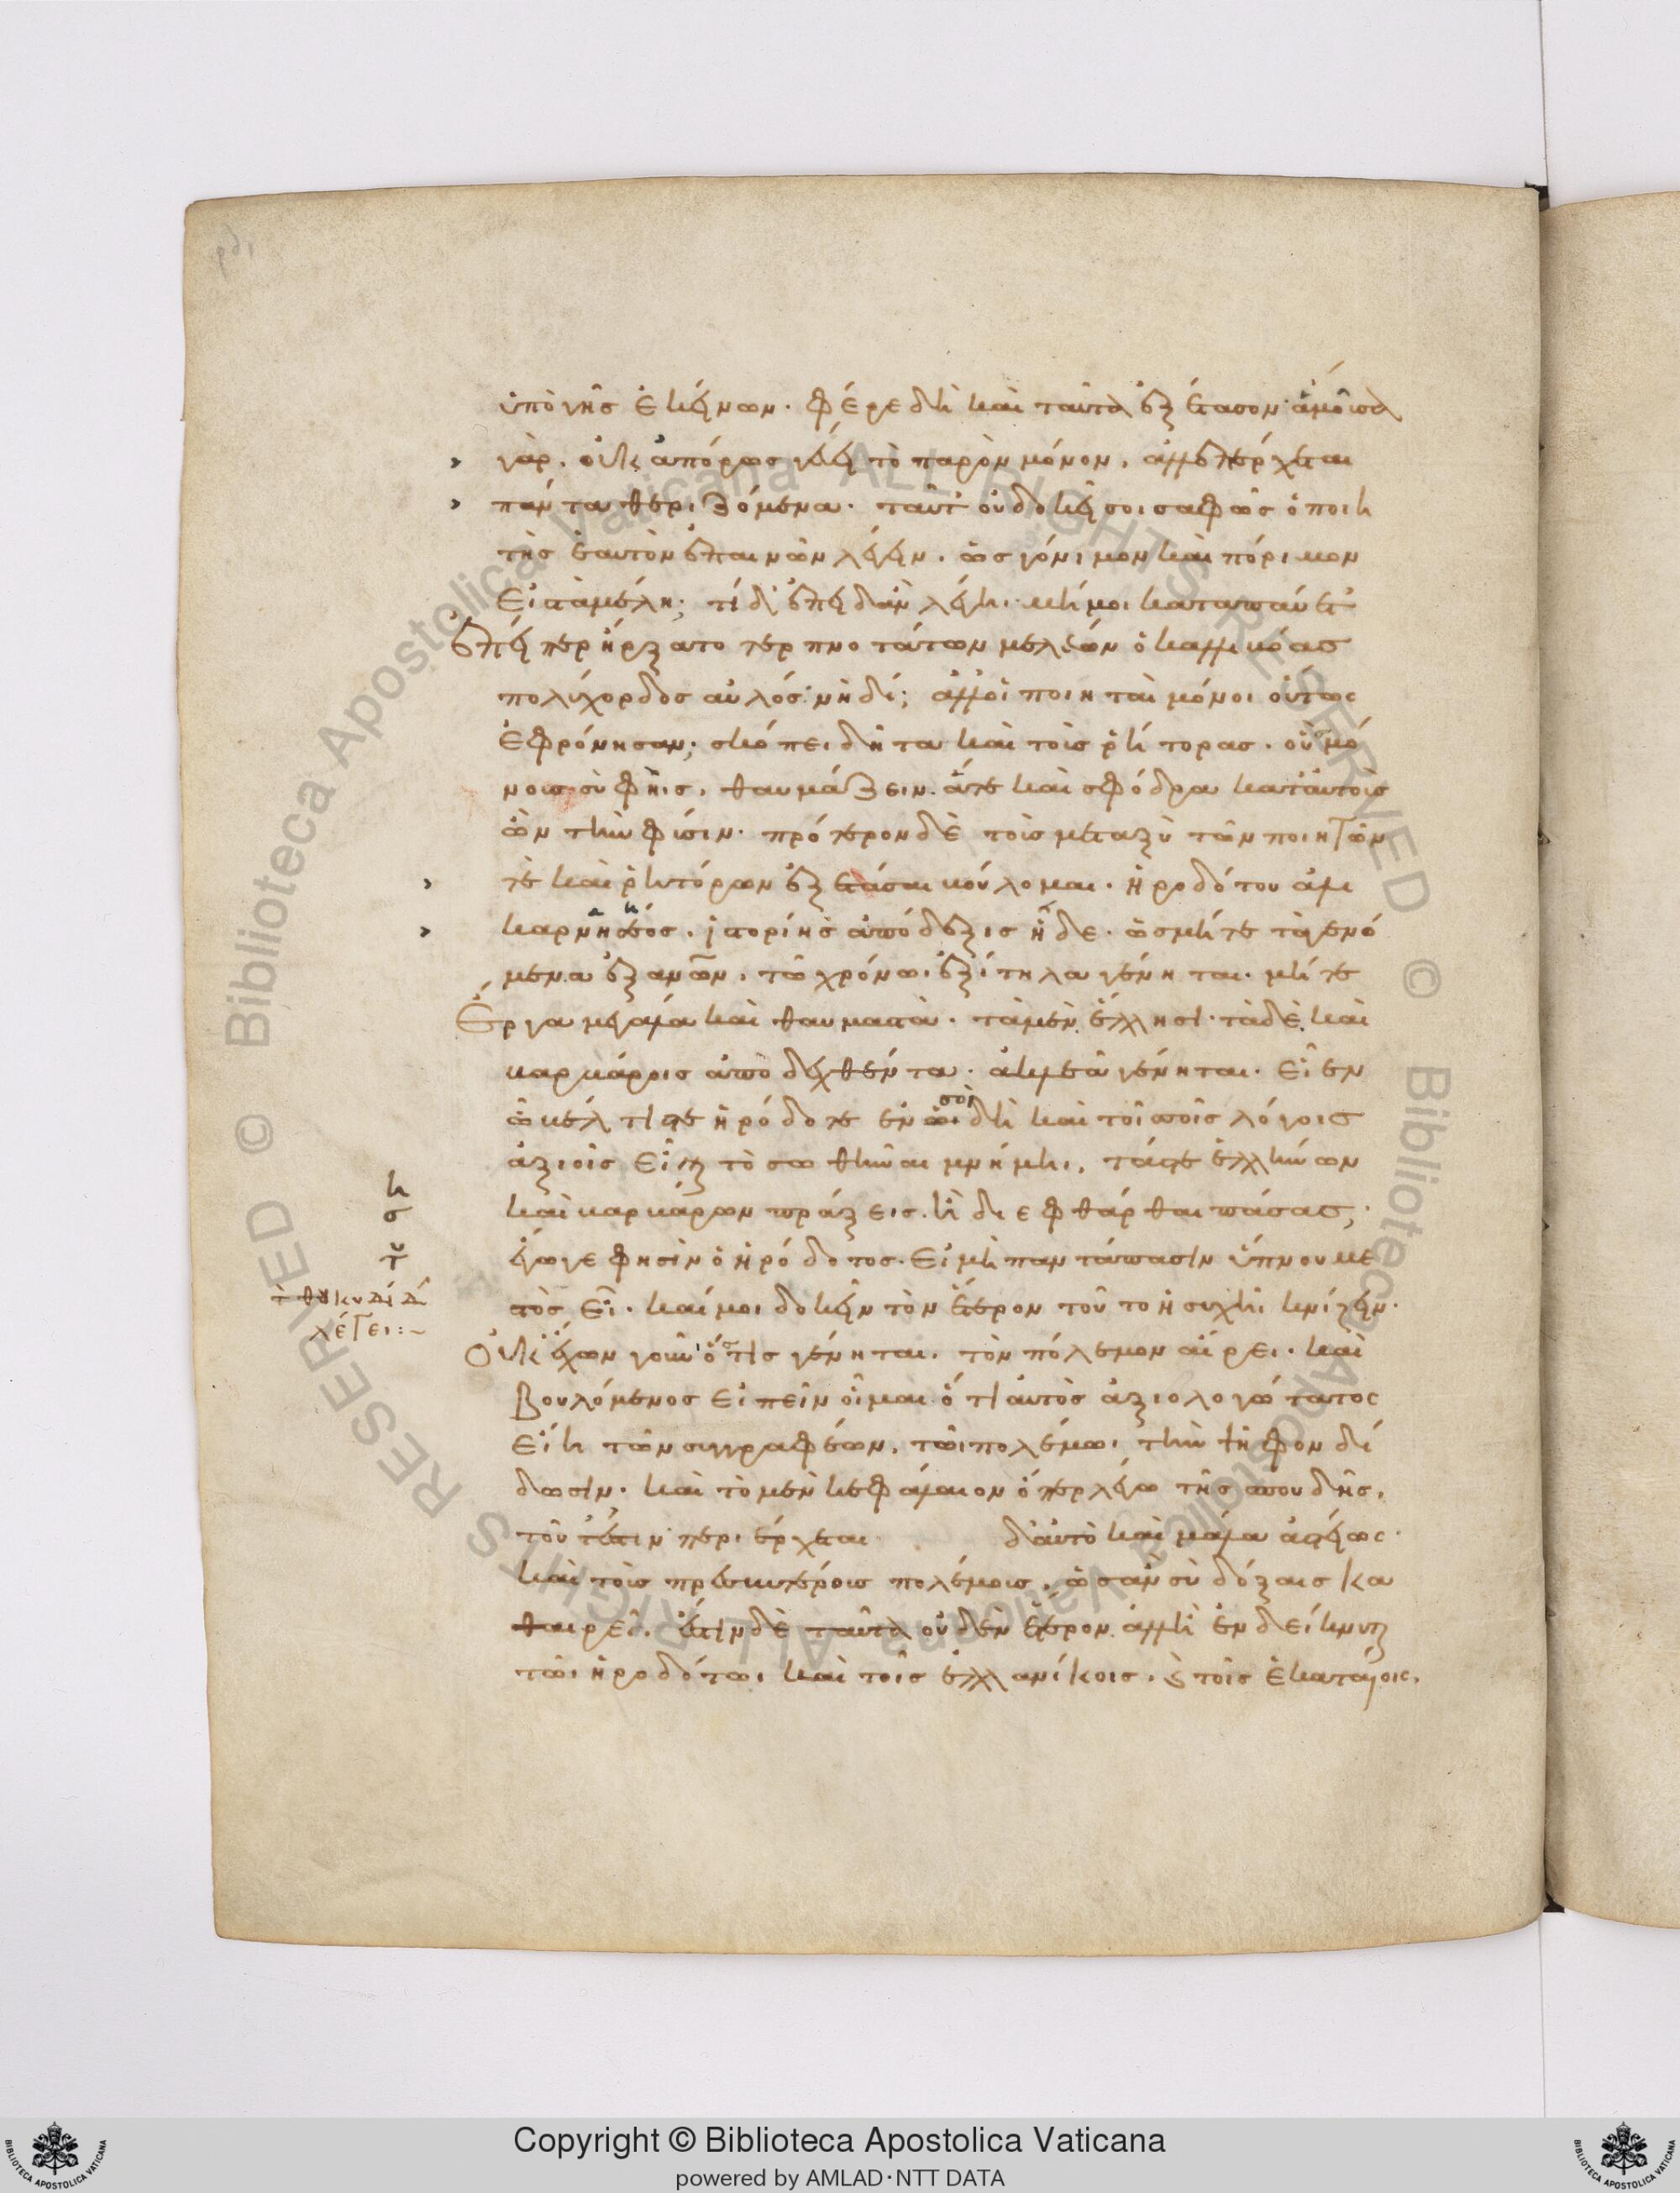 ὑπὸ γῆς ἐκείνων. φέρε δὴ καὶ ταῦτα ἐξέτασον ἀμόϊσα
γὰρ. οὐκ ἀπόρως γέει τὸ παρὸν μόνον. ἀλλ' ἐπέρχεται
πάντα θεριζόμενα. ταῦτ' οὐ δοκεῖ σοι σαφῶς ὁ ποιη
τὴς ἑαυτὸν ἐπαινῶν λέγειν. ὡς γόνιμον καὶ πόριμον
εἰς τὰ μέλη; τί δ' ἐπειδὰν λέγη. μή μοι καταπαύετ'
ἐπείπερ ἤρξατο τερπνοτάτων μελέων ὁ καλλιβόας
πολύχορδος αὐλός. μὴ δέ; ἀλλ' οἱ ποιηταὶ μόνοι οὕτως
ἐφρόνησαν; σκόπει δῆτα καὶ τοὺς ῥήτορας. οὓς μό
νους σὺ φῂς. θαυμάζειν. ἅτε καὶ σφόδρα κατ' αὐτοὺς
ὢν τὴν φύσιν. πρότερον δὲ τοὺς μεταξὺ τῶν ποιητῶν
τε καὶ ῥητόρων ἐξετάσαι βούλομαι. ἡροδότου ἁλι
καρνησέος. ἱστορίης ἀπόδεξις ἥδε. ὡς μήτε τὰ γενό
μενα ἐξ ἀνων. τῶ χρόνωι ἐξίτηλα γένηται. μήτε
ἔργα μεγάλα καὶ θαυμαστὰ. τὰ μὲν ἕλλησι. τὰ δὲ καὶ
βαρβάροις ἀποδειχθέντα. ἀκλεᾶ γένηται. εἶεν
ὦ βέλτιστε ἡρόδοτε ἐν ὧι δὴ καὶ τοῖς ποῖς λόγοις
σοὶ
ἀξιοῖς εἶναι τὸ σωθῆναι μνήμηι. τάς τε ἑλλήνων
καὶ βαρβάρων πράξεις. ἢ διεφθάρθαι πάσας;
ἔγωγε φησὶν ὁ ἡρόδοτος. εἰ μὴ παντάπασιν ὕπνου με
στὸς εἶ. καί μοι δοκεῖν τὸν ἕτερον τοῦτο ἡσυχῆι κνίζειν.
οὐκ ἔχων γοῦν ὅστις γένηται. τὸν πόλεμον αἴρει. καὶ
βουλόμενος εἰπεῖν οἶμαι ὅτι αὐτὸς ἀξιολογώτατος
εἴη τῶν συγγραφέων. τῶι πολέμωι τὴν ψῆφον δί
δωσιν. καὶ τὸ μὲν κεφάλαιον ὅπερ λέγω τῆς σπουδῆς.
τοῦτέστιν περιέρχεται δ' αὐτὸ καὶ μάλα ἀστείως.
καὶ τοὺς πρεσβυτέρους πολέμους. ὡς ἂν σὺ δόξαις κα
θαιρεῖ. ἔστιν δὲ ταῦτα οὐδὲν ἕτερον ἀλλ' ἢ ἐνδείκνυται
τῶι ἡροδότωι καὶ τοῖς ἑλλανίκοις. καὶ τοῖς ἑκαταίοις.
τ θουκυδίδ
λέγει:~